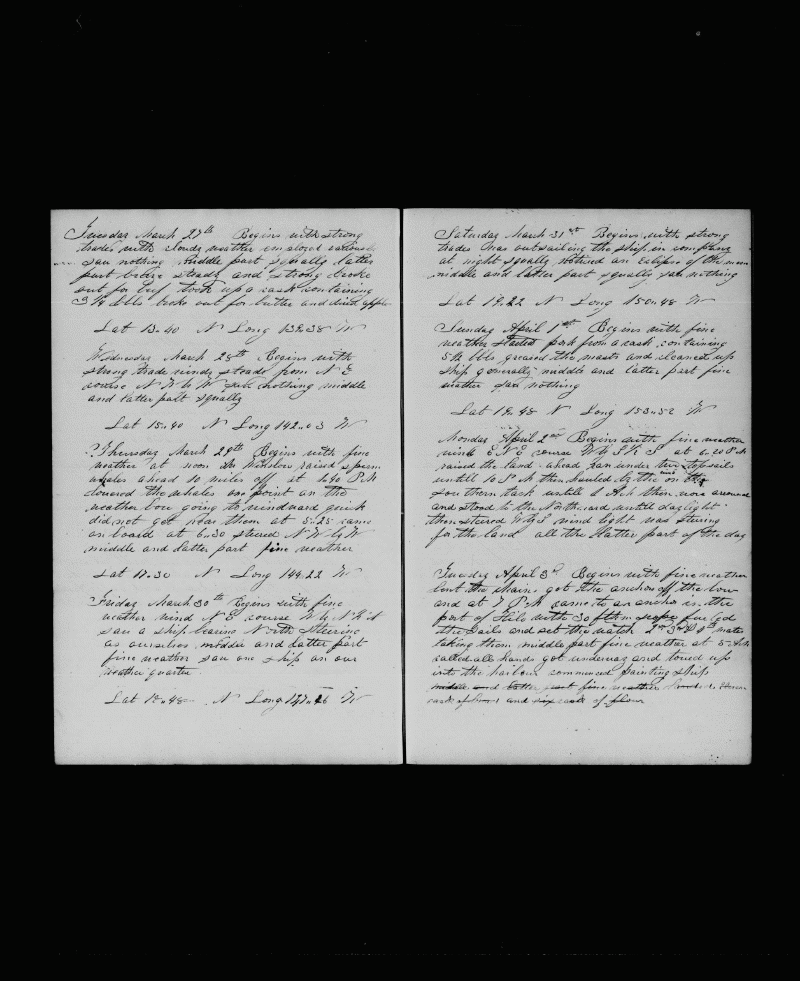 Tuesday March 27th Begins with strong
trades with cloudy weather employed
saw nothing middle part squally latter
part breeze steady and strong broke
out for beef took up a cask containing
3½ bbls broke out for butter and dried apples
Lat 13..40 N Long 139..38 W
Wednesday March 28th Begins with
strong trade winds steady from N E
course N W by W saw nothing middle
and latter part squally
Lat 15..40 N Long 142..03 W
Thursday March 29th Begins with fine
weather at noon Winslow raised sperm
whales ahead 10 miles off at 1..40 P M
lowered the whales on point on the
weather bow going to windward quick
did not get near them at 5..25 came
on board at 6..30 steered N W by W
middle and latter part fine weather
Lat 17..30 N Long 144..22 W
Friday March 30th Begins with fine
weather wind N E course W by N
saw a ship bearing North steering
as ourselves middle and latter part
fine weather saw one ship on our
weather quarter
Lat 18..48 N Long 147..26 W
Saturday March 31st Begins with strong
trades was outsailing the ship in company
at night squally noticed an Eclipse of the moon
middle and latter part squally saw nothing
Lat 19..22 N Long 150..48 W
Sunday April 1st Begins with fine
weather started pork from a cask containing
5½ bbls greased the masts and cleaned up
ship generally middle and latter part fine
weather saw nothing
Lat 19..48 N Long 153..52 W
Monday April 2nd Begins with fine weather
wind E N E course W by S at 6..20 P M
raised the land ahead ran under two topsails
untill 10 P M then hauled by the wind on the
southern tack untill 1 A M then wore around
and stood to the Northward untill daylight
then steered W by S wind light was steering
for the land all the latter part of the day
Tuesday April 3d Begins with fine weather
bent the chains got the anchor off the bow
and at 7 P M came to an anchor in the
port of Hilo with 30 fthm furled
the sails and set the watch 2nd 3rd & 4th mates
taking them middle part fine weather at 5 A M
called all hands got underway and towed up
into the harbour commenced painting ship
middle and latter part fine weather
cask of and six cask of flour